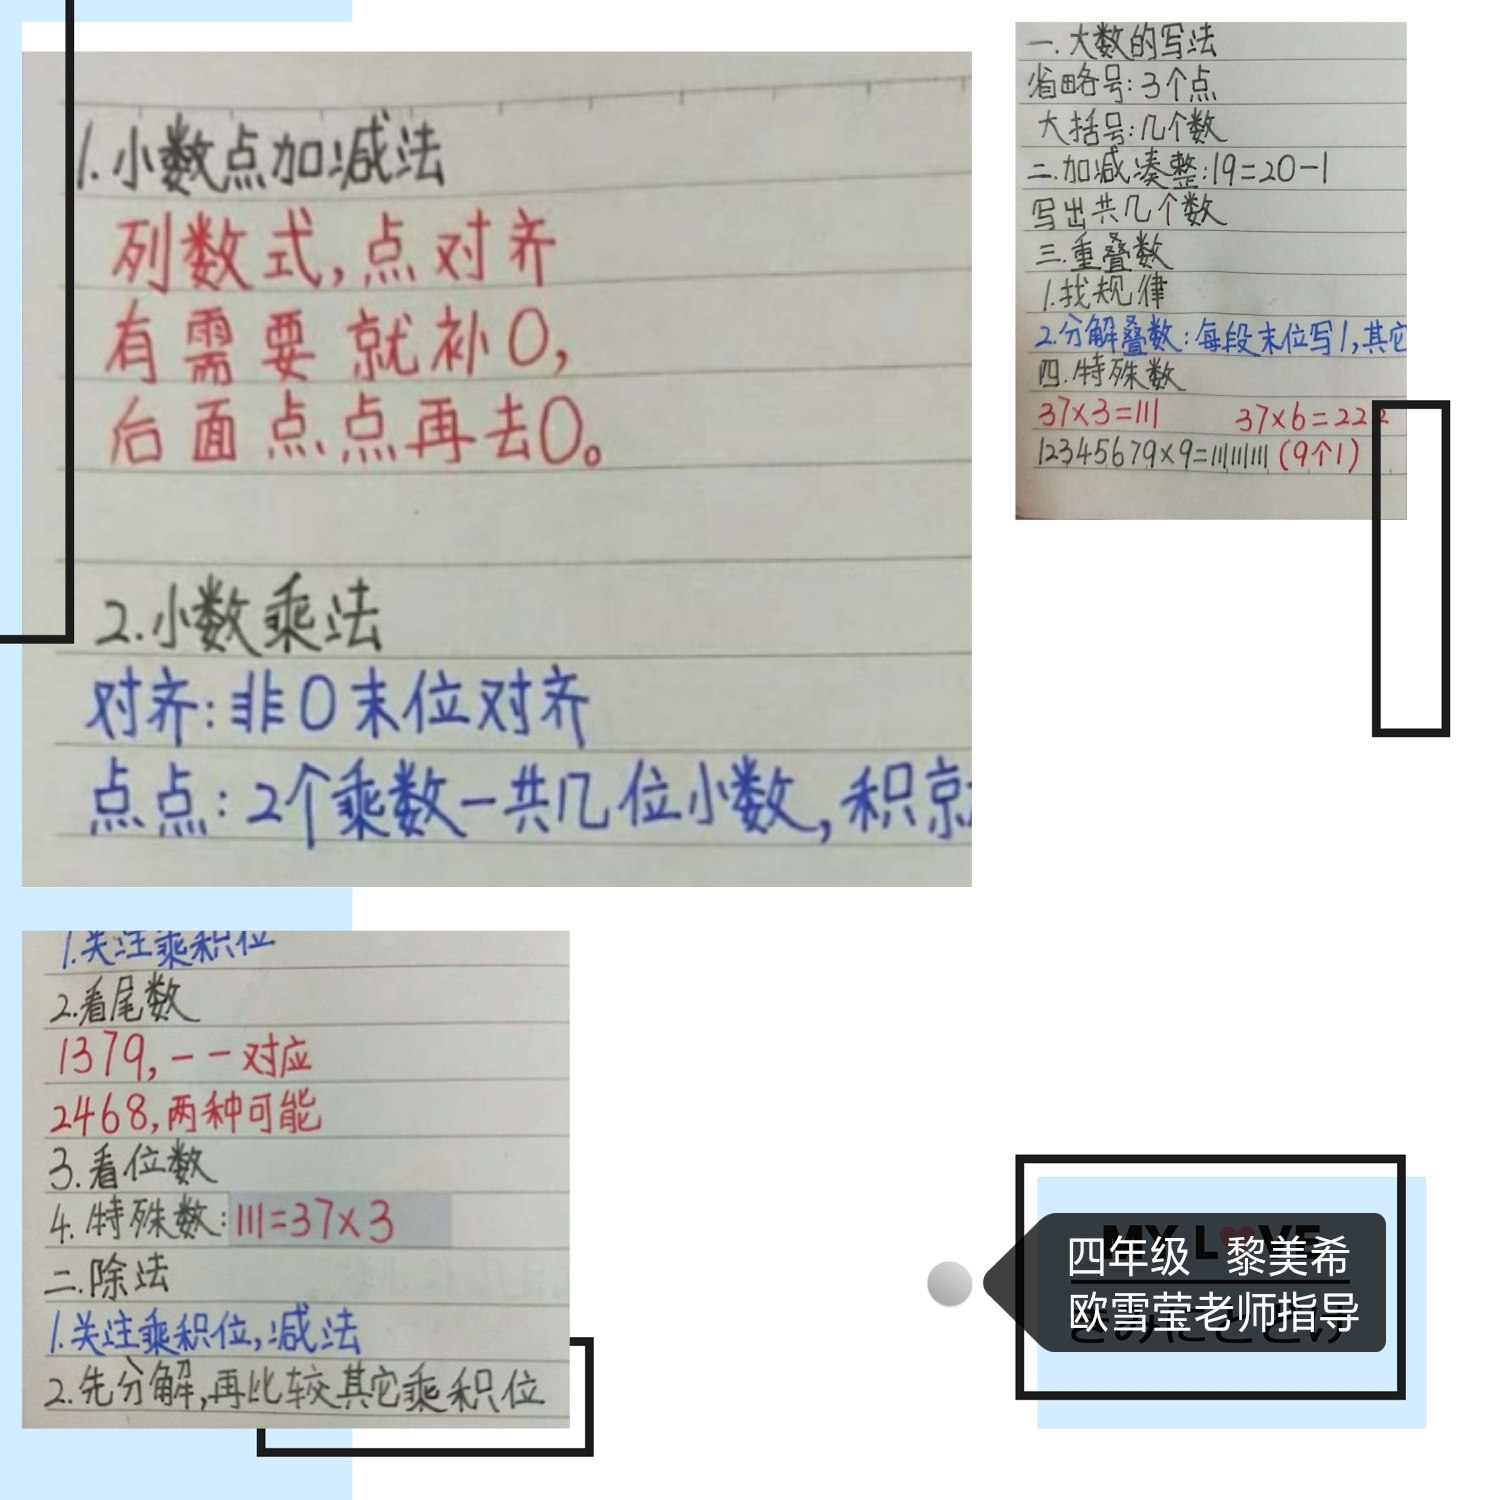 1.小数点加减法
列数式,点对齐
有需要就补0,
后面点点再去0。
2.小数乘法
对齐:非0末位对齐
点点:2个乘数一共几位小数,积就
一.大数的写法
省略号:3个点
大括号:几个数
二.加减凑整:19=20-1
写出共几个数
三.重叠数
1.找规律
2.分解叠数:每段末位写1,其它
四.特殊数
37×3=111 37×6=222
12345679×9=111111111(9个1)
1.关注乘积位
2.看尾数
1379,一一对应
2468,两种可能
3.看位数
4.特殊数:111=37×3
二.除法
1.关注乘积位,减法
2.先分解,再比较其它乘积位
MY LOVE
四年级 黎美希
欧雪莹老师指导